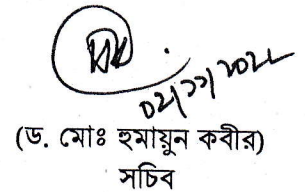 ০২/১১/২০২২
(ড. মোঃ হুমায়ুন কবীর)
সচিব